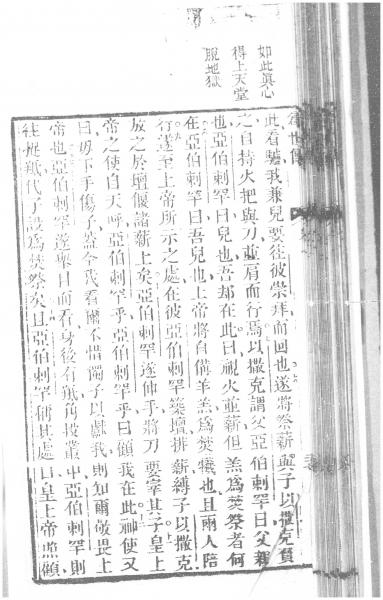 如此真心
得上天堂
脫地獄
此看驢我兼兒要往彼崇拜而回也遂將祭薪與子以撒克負
之自持火把與刀並肩而行焉以撒克謂父亞伯剌罕曰父親
也亞伯剌罕曰兒也吾却在此曰視火並薪但羔為焚祭者何
在亞伯剌罕曰吾兒也上帝將自備羊羔為焚犧也且兩人陪
行遂至上帝所示之處在彼亞伯剌罕築壇排薪縛子以撒克
放之於壇偃諸薪上矣亞伯剌罕遂伸手將刀要宰其子皇上
帝之使自天呼亞伯剌罕乎亞伯剌罕乎曰顧我在此神使又
曰毋下手傷子蓋今我看爾不惜獨子以獻我則知爾敬畏上
帝也亞伯剌罕遂舉目而看身後有羝角投叢中亞伯剌罕則
往捉羝代子為焚祭矣且亞伯剌罕稱其處曰皇上帝照顧